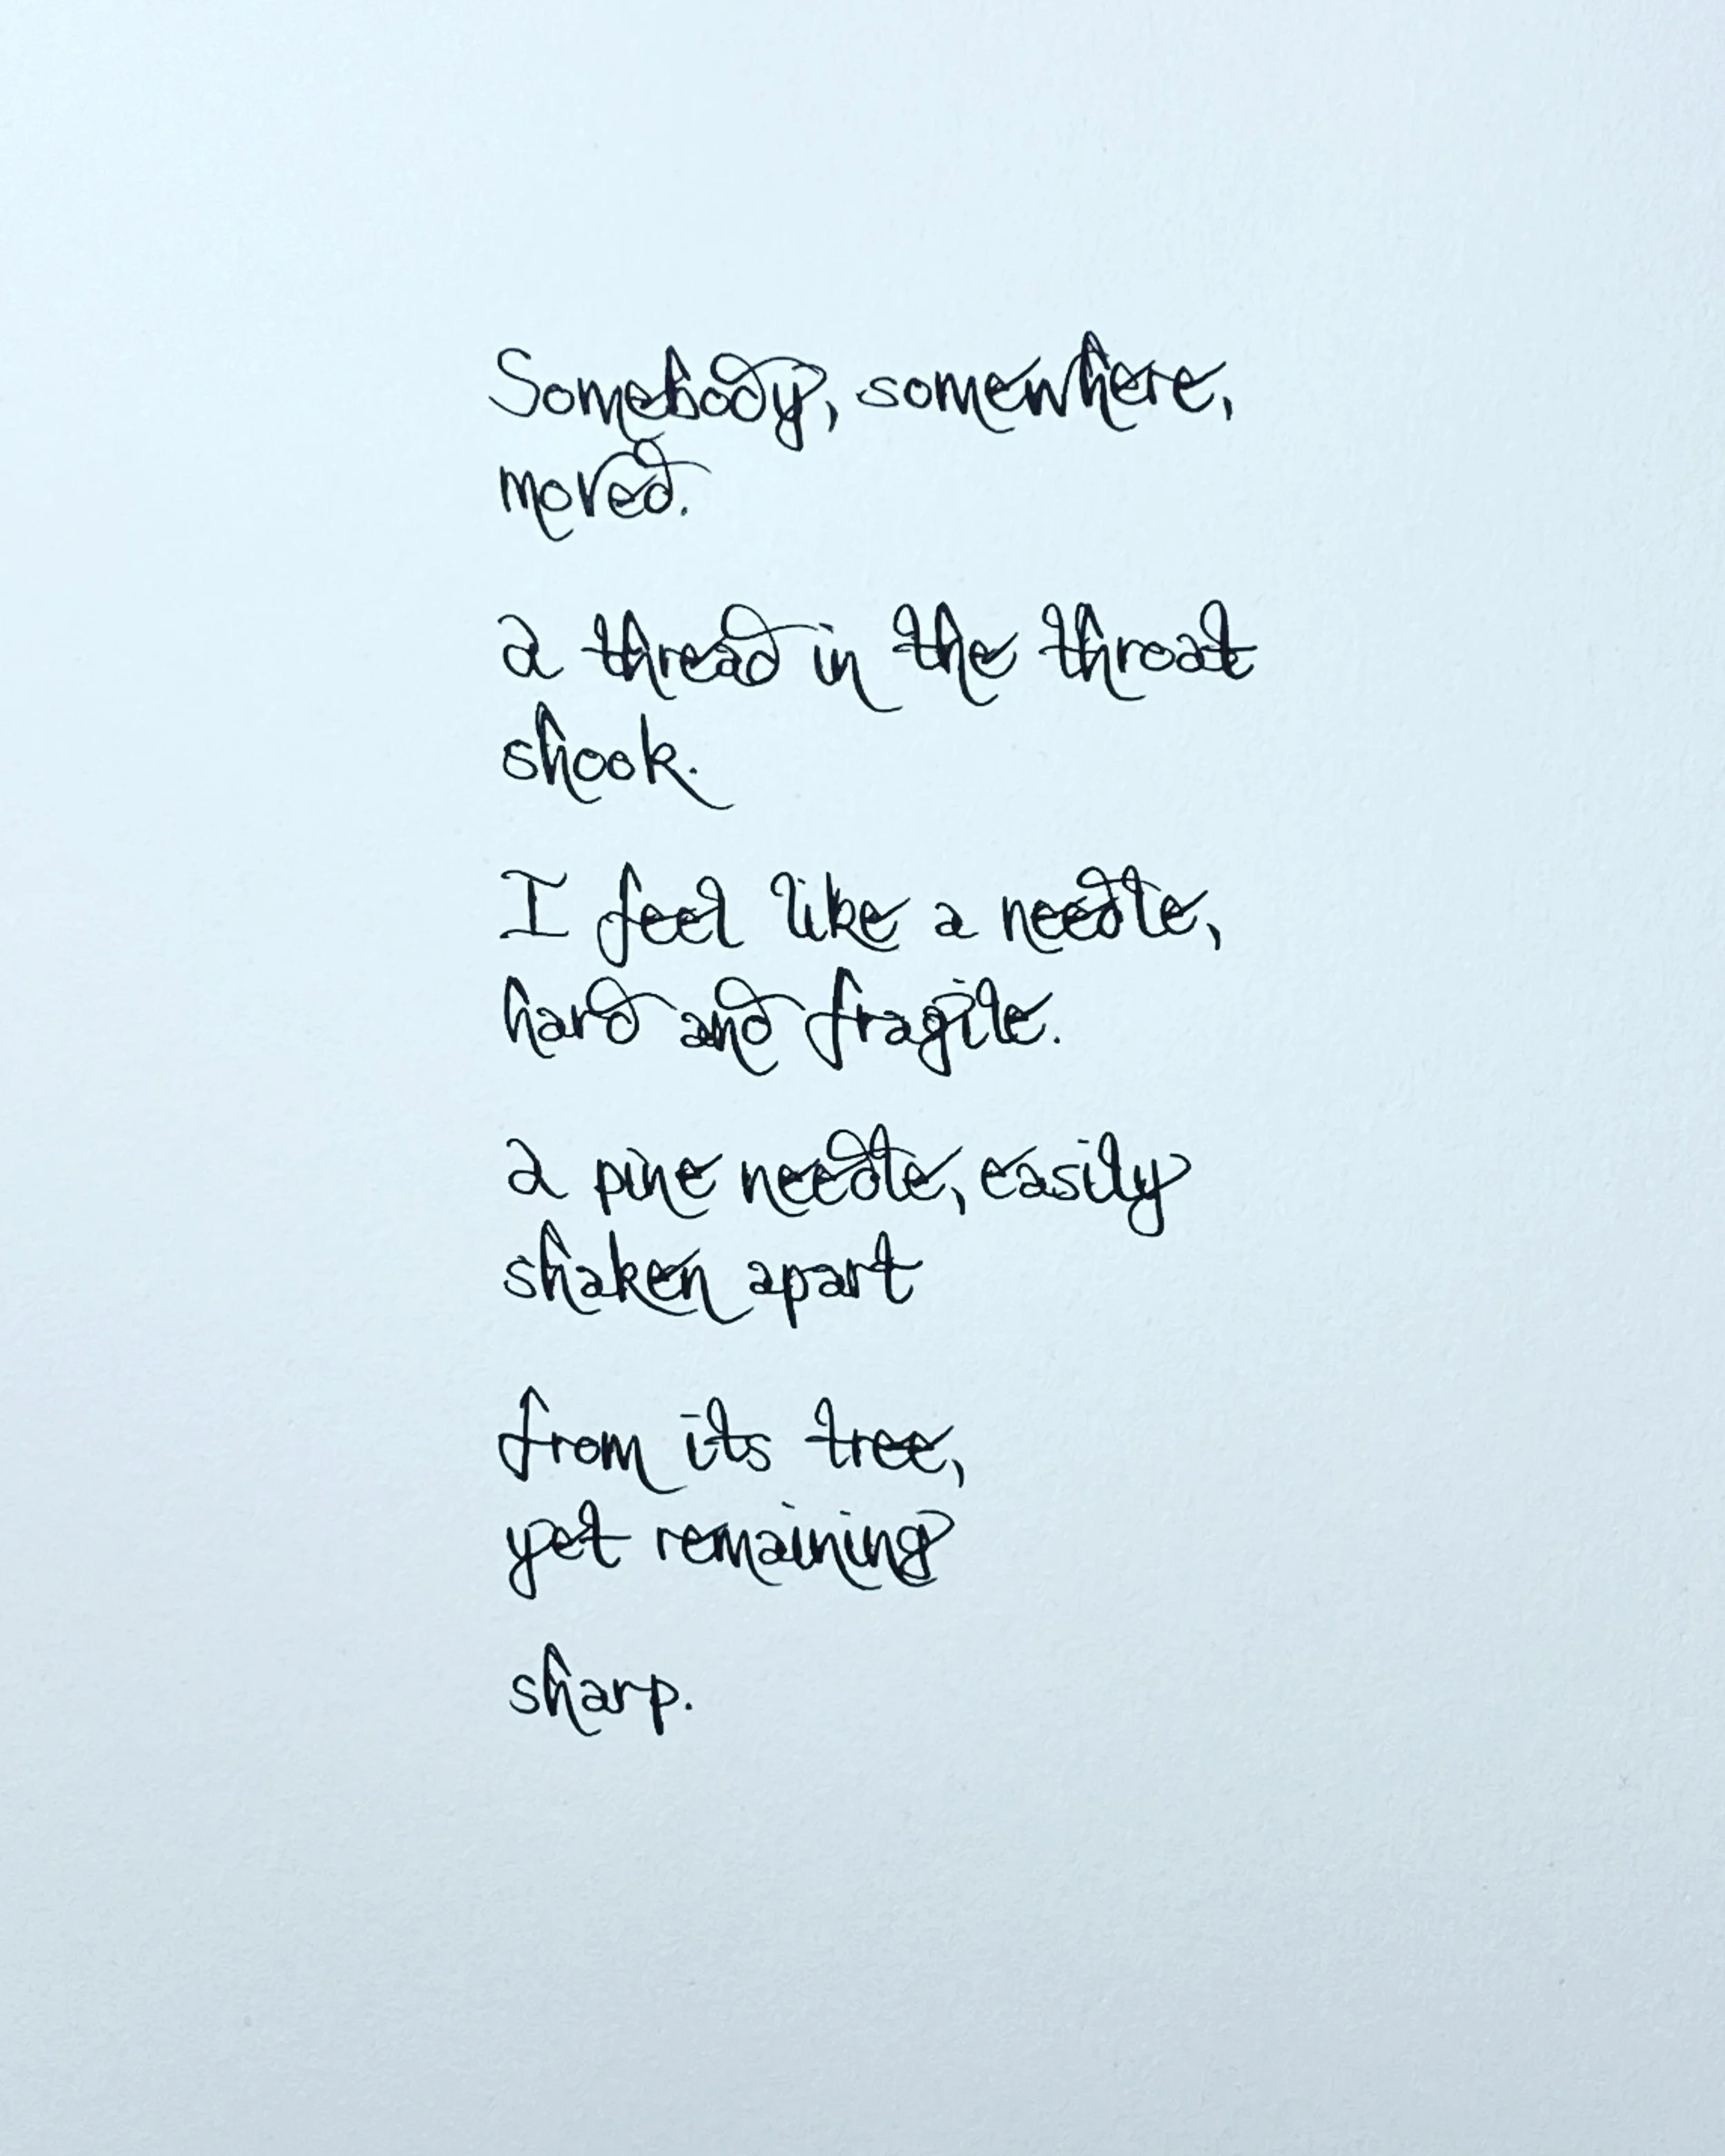 Somebody, somewhere,
moved.
A thread in the throat
shook.
I feel like a needle,
hard and fragile.
A pine needle, easily
shaken apart
from its tree,
yet remaining
sharp.